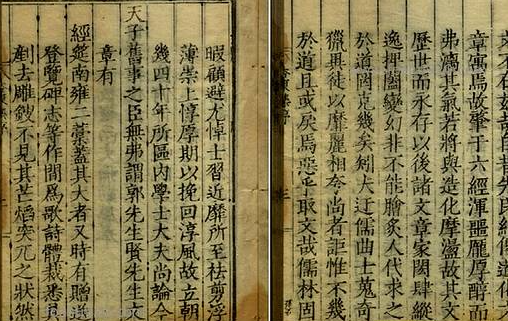 章寓焉故肇于六經渾噩龎厚醇而
弗漓其氣若將與造化摩盪故其文
歷世而永存以後諸文章家閎肆縱
逸捭闔變幻非不能膾炙人代求之
於道罔克幾矣矧大迂儒曲士蒐奇
獵異徒以靡麗相夸尚者詎惟不幾
於道且或戾焉惡乎取文哉儒林固
暇顧避尤悼士習近靡所至祛剪浮
薄崇上惇厚期以挽回淳風故立朝
幾四十年所區內學士大夫尚論今
天子舊事之臣無弗謂郭先生賢先生
章有
經筵南雍二藁蓋其大者又時有贈送
登覽碑志等作間為歌詩體裁悉
剷去雕鎪不見其芒熖突兀之狀然